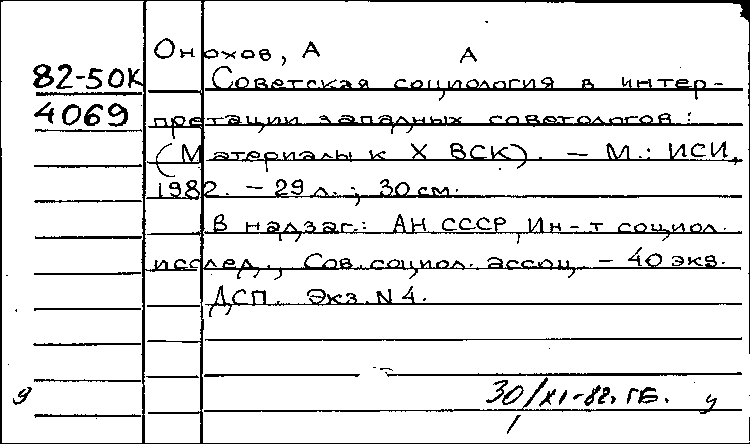 Онохов, А А
82-50К Советская социология в интер-
4069 претации западных советологов:
(Материалы к X ВСК). — М.: ИСИ,
1982. — 29 л.; 30 см.
В надзаг.: АН СССР, Ин-т социол.
исслед., Сов. социол. ассоц. — 40 экз.
ДСП. Экз. N 4.
30/XI-82. ГБ. у